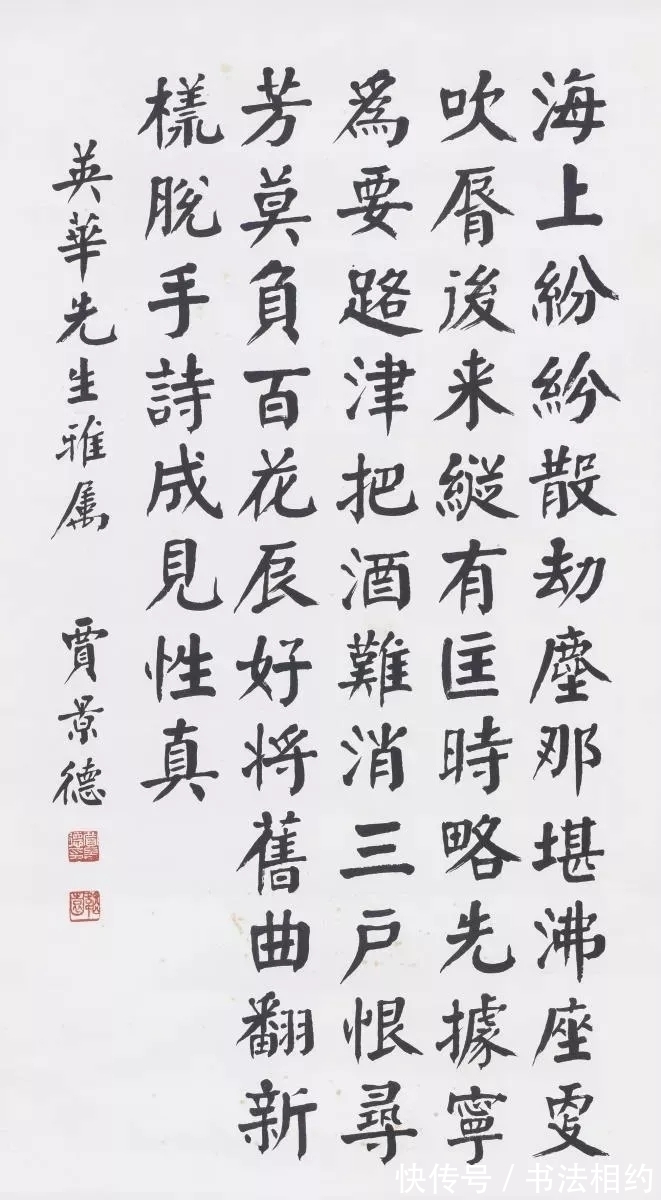 海上紛紛散劫塵那堪沸座更
吹脣後来縱有匡時略先據寧
爲要路津把酒難消三戶恨尋
芳莫負百花辰好将舊曲翻新
樣脫手詩成見性真
英華先生雅属 賈景德
快传号 / 书法相约